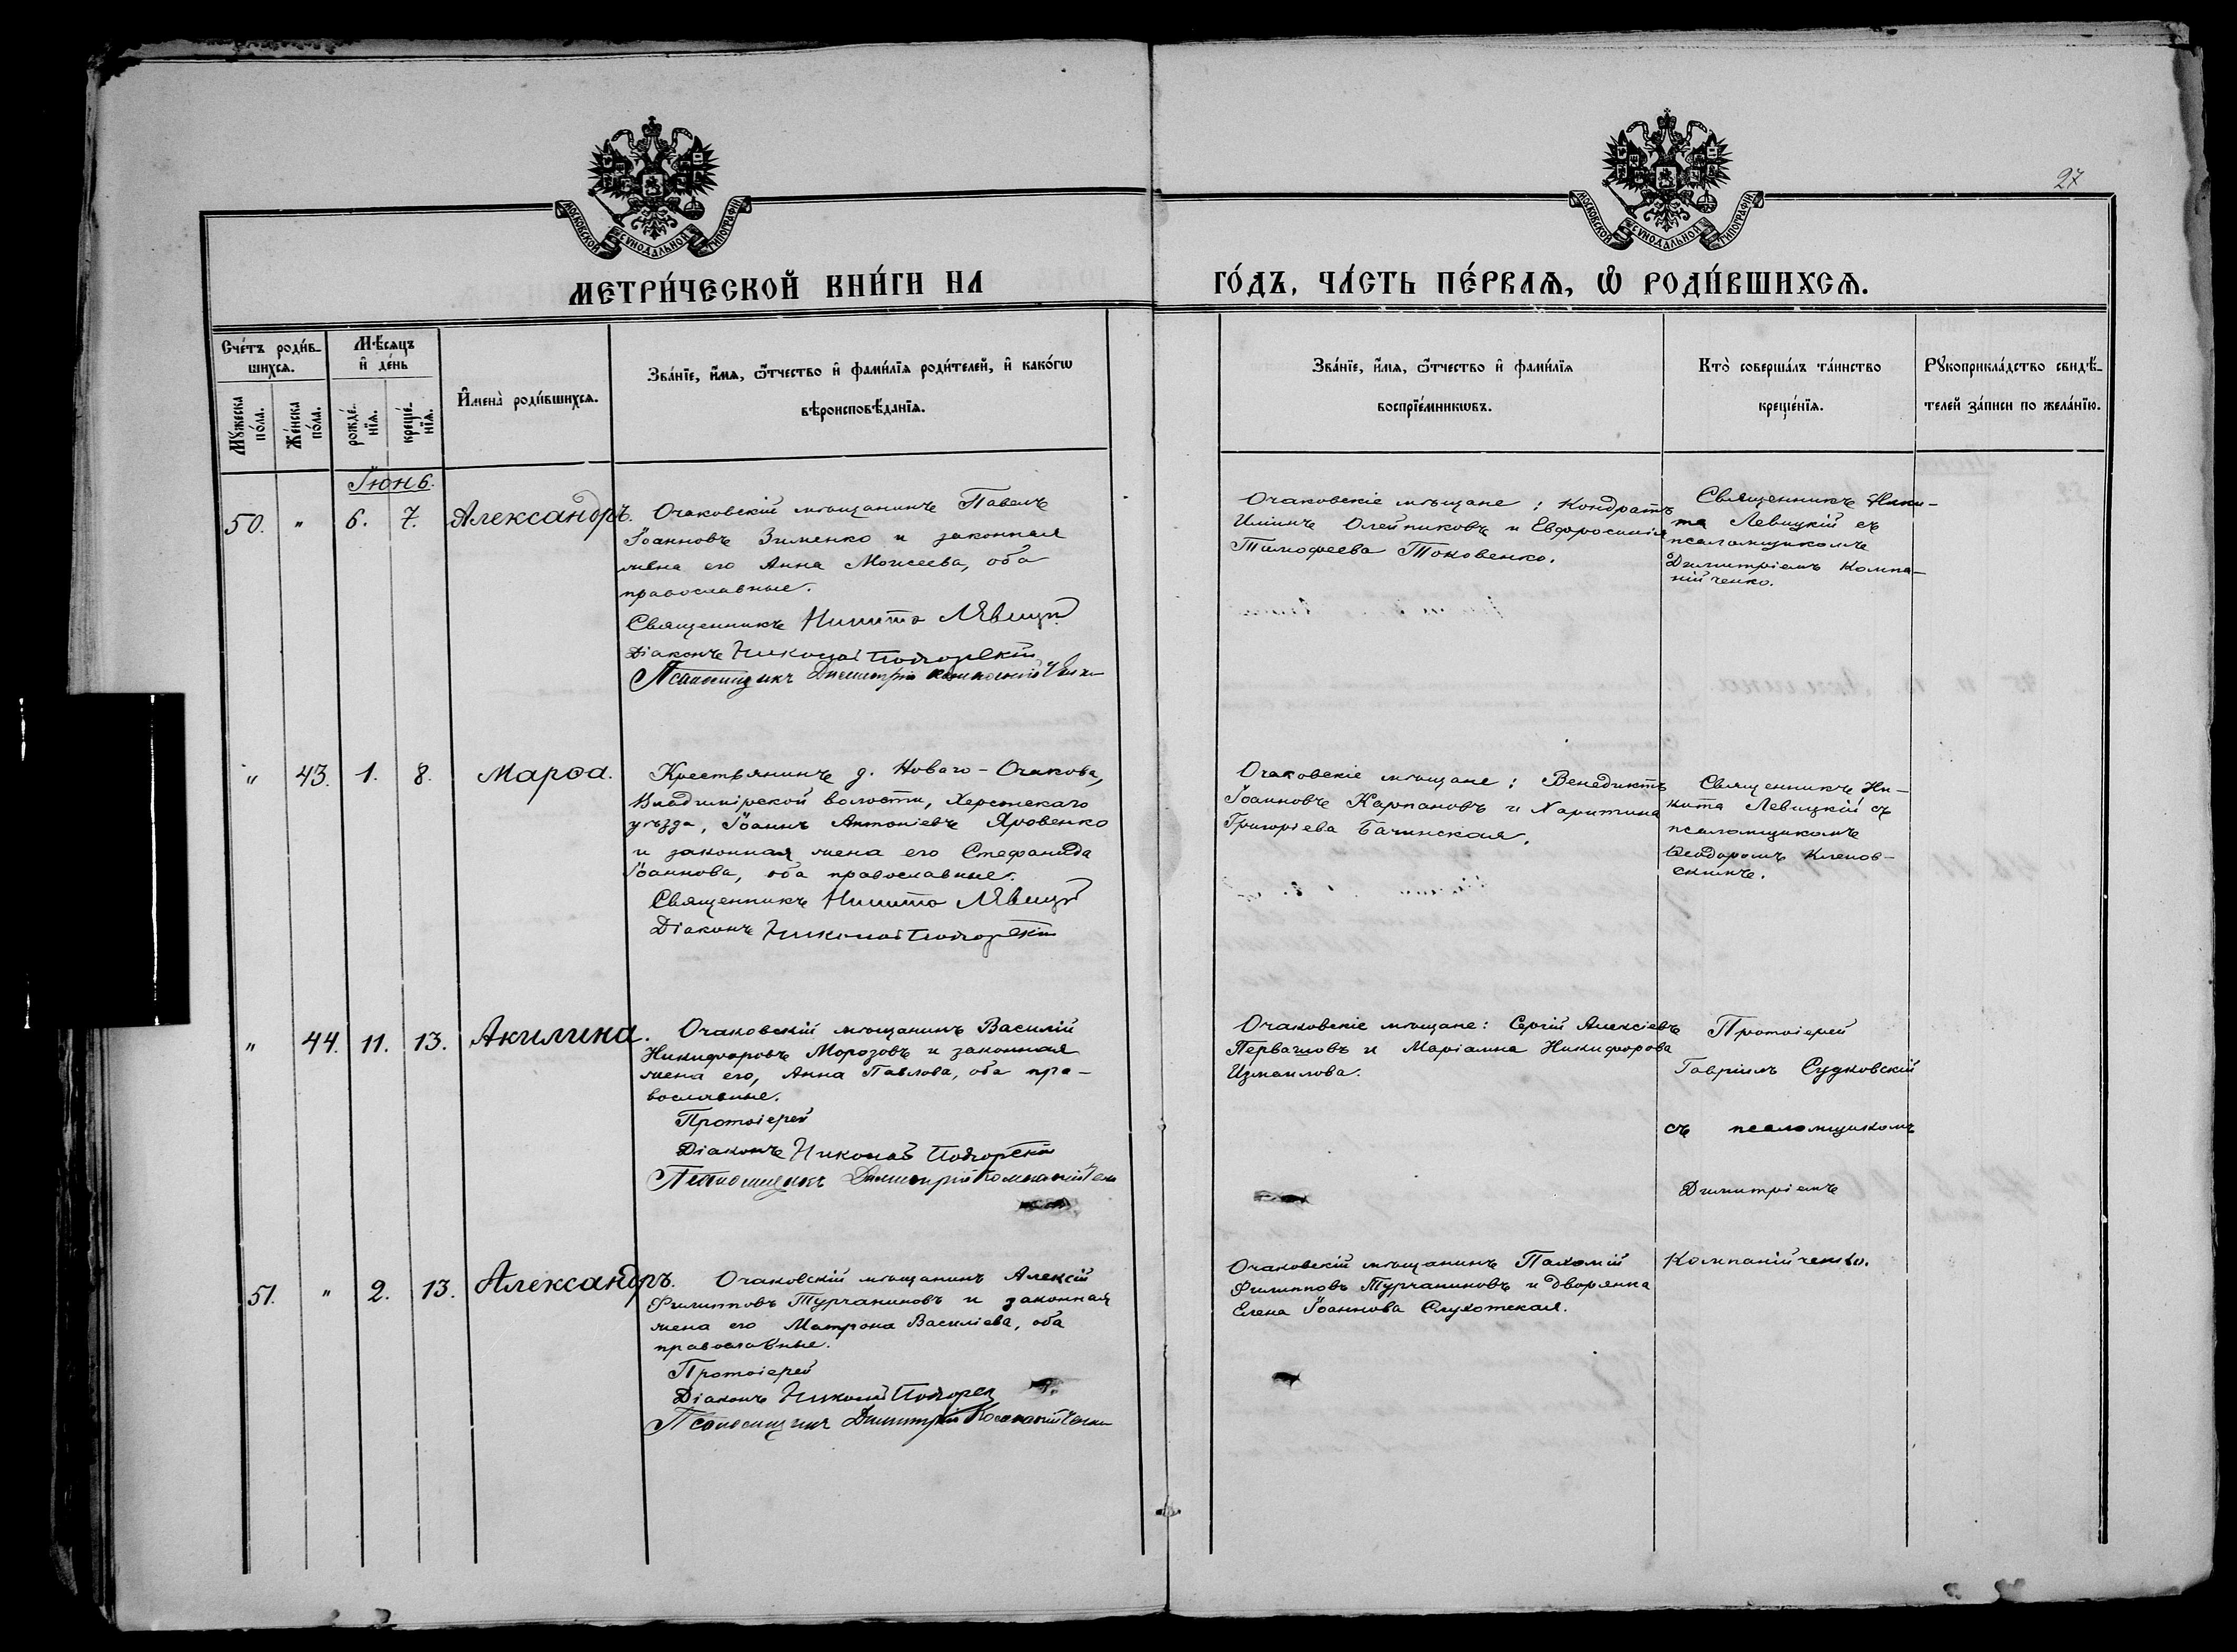 27
МОСКОВСКОЙ СѴНОДАЛЬНОЙ ТИПОГРАФІИ
МОСКОВСКОЙ СѴНОДАЛЬНОЙ ТИПОГРАФІИ
МЕТРИ́ЧЕСКОЙ КНИ́ГИ НА
ГО́ДЪ, ЧА́СТЬ ПЕ́РВАѦ, Ѿ РОДИ́ВШИХСѦ.
Сче́тъ роди́в-
шихсѧ.
Мѣ́сѧцъ
и҆ де́нь
Мꙋ́жеска
по́ла.
Же́нска
по́ла.
рожде́-
нїѧ.
креще́-
нїѧ.
И҆мена̀ роди́вшихсѧ.
Зва́нїе, и҆́мѧ, ѻ҆́тчество и҆ фами́лїѧ роди́телей, и҆ како́гѡ
вѣроисповѣ́данїѧ.
Зва́нїе, и҆́мѧ, ѻ҆́тчество и҆ фами́лїѧ
воспрїе́мникѡвъ.
Кто̀ соверша́лъ та́инство
креще́нїѧ.
Рꙋкоприкла́дство свидѣ́-
телей за́писи по жела́нїю.
Іюнь.
50. " 6. 7. Александръ.
Очаковскій мѣщанинъ Павелъ
Іоанновъ Зименко и законная
жена его Анна Моисеева, оба
православные.
Священникъ Никита Левицкій
Діаконъ Николай Подгорскій
Псаломщикъ Димитрій Компанійченко
Очаковскіе мѣщане: Кондратъ
Ильинъ Олейниковъ и Евфросинія
Тимофеева Токовенко.
Священникъ Ники-
та Левицкій съ
псаломщикомъ
Димитріемъ Компа-
нійченко.
" 43. 1. 8. Марѳа.
Крестьянинъ д. Новаго-Очакова,
Владимірской волости, Херсонскаго
уѣзда, Іоаннъ Антоніевъ Яровенко
и законная жена его Стефанида
Іоаннова, оба православные.
Священникъ Никита Левицкій
Діаконъ Николай Подгорскій
Очаковскіе мѣщане: Венедиктъ
Іоанновъ Карпановъ и Харитина
Григоріева Бачинская.
Священникъ Ни-
кита Левицкій съ
псаломщикомъ
Ѳеодоромъ Кленов-
скимъ.
" 44. 11. 13. Акилина.
Очаковскій мѣщанинъ Василій
Никифоровъ Морозовъ и законная
жена его, Анна Павлова, оба пра-
вославные.
Протоіерей
Діаконъ Николай Подгорскій
Псаломщикъ Димитрій Компанійченко
Очаковскіе мѣщане: Сергій Алексіевъ
Первашовъ и Маріамна Никифорова
Измаилова.
Протоіерей
Гавріилъ Судковскій
съ псаломщикомъ
Димитріемъ
Компанійченко.
51. " 2. 13. Александръ.
Очаковскій мѣщанинъ Алексій
Филипповъ Турчаниновъ и законная
жена его Матрона Василіева, оба
православные.
Протоіерей
Діаконъ Николай Подгорск
Псаломщикъ Димитрій Компанійченко
Очаковскій мѣщанинъ Пахомій
Филипповъ Турчаниновъ и дворянка
Елена Іоаннова Слухотская.